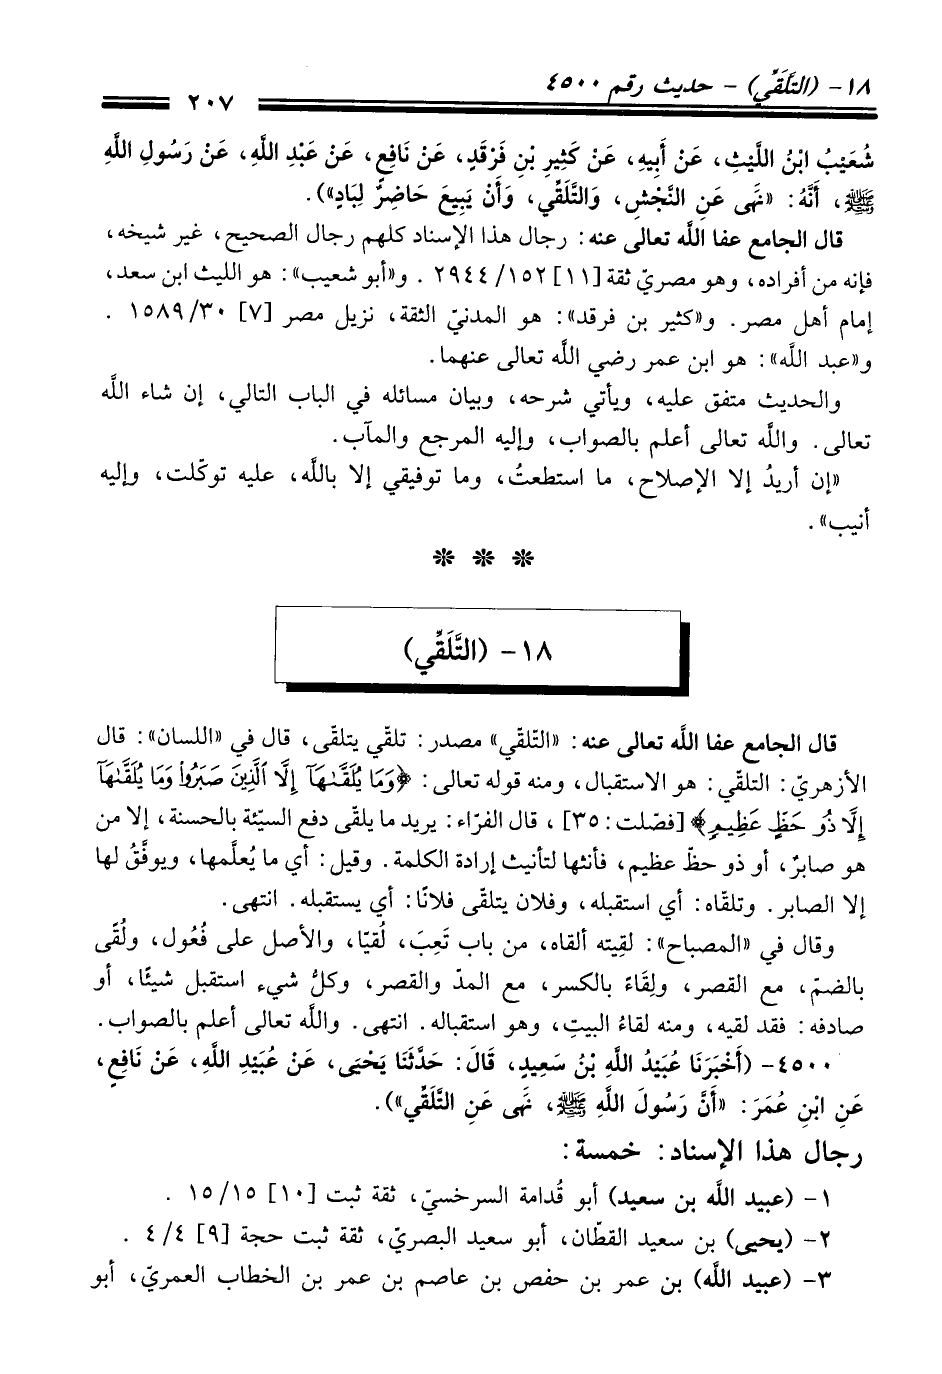 ١٨- (التَّلَقِّي) - حديث رقم ٤٥٠٠
٢٠٧
شُعَيْبُ ابْنُ اللَّيْثِ، عَنْ أَبِيهِ، عَنْ كَثِيرِ بْنِ فَرْقَدٍ، عَنْ نَافِعٍ، عَنْ عَبْدِ اللَّهِ، عَنْ رَسُولِ اللَّهِ
ﷺ، أَنَّهُ: «نَهَى عَنِ النَّجْشِ، وَالتَّلَقِّي، وَأَنْ يَبِيعَ حَاضِرٌ لِبَادٍ»).
قال الجامع عفا اللَّه تعالى عنه: رجال هذا الإسناد كلهم رجال الصحيح، غير شيخه،
فإنه من أفراده، وهو مصريّ ثقة [١١] ٢٩٤٤/١٥٢ . و«أبو شعيب»: هو الليث ابن سعد،
إمام أهل مصر. و«كثير بن فرقد»: هو المدنيّ الثقة، نزيل مصر [٧] ١٥٨٩/٣٠ .
و«عبد اللَّه»: هو ابن عمر رضي اللَّه تعالى عنهما.
والحديث متفق عليه، ويأتي شرحه، وبيان مسائله في الباب التالي، إن شاء اللَّه
تعالى. واللَّه تعالى أعلم بالصواب، وإليه المرجع والمآب.
«إن أريدُ إلا الإصلاح، ما استطعتُ، وما توفيقي إلا باللَّه، عليه توكّلت، وإليه
أنيب».
* * *
١٨- (التَّلَقِّي)
قال الجامع عفا اللَّه تعالى عنه: «التّلقي» مصدر: تلقّي يتلقى، قال في «اللسان»: قال
الأزهريّ: التلقّي: هو الاستقبال، ومنه قوله تعالى: ﴿وَمَا يُلَقَّىٰهَآ إِلَّا ٱلَّذِينَ صَبَرُواْ وَمَا يُلَقَّىٰهَآ
إِلَّا ذُو حَظٍّ عَظِيمٍ﴾ [فصّلت: ٣٥]، قال الفرّاء: يريد ما يلقى دفع السيّئة بالحسنة، إلا من
هو صابرٌ، أو ذو حظّ عظيم، فأنثها لتأنيث إرادة الكلمة. وقيل: أي ما يُعلَّمها، ويوفَّقُ لها
إلا الصابر. وتلقّاه: أي استقبله، وفلان يتلقّى فلانًا: أي يستقبله. انتهى.
وقال في «المصباح»: لقِيته ألقاه، من باب تَعِبَ، لُقيّا، والأصل على فُعُول، ولُقًى
بالضمّ، مع القصر، ولِقَاءً بالكسر، مع المدّ والقصر، وكلُّ شيء استقبل شيئًا، أو
صادفه: فقد لقيه، ومنه لقاءُ البيتِ، وهو استقباله. انتهى. واللَّه تعالى أعلم بالصواب.
٤٥٠٠- (أَخْبَرَنَا عُبَيْدُ اللَّهِ بْنُ سَعِيدٍ، قَالَ: حَدَّثَنَا يَحْيَى، عَنْ عُبَيْدِ اللَّهِ، عَنْ نَافِعٍ،
عَنِ ابْنِ عُمَرَ: «أَنَّ رَسُولَ اللَّهِ ﷺ، نَهَى عَنِ التَّلَقِّي»).
رجال هذا الإسناد: خمسة:
١- (عبيد اللَّه بن سعيد) أبو قُدامة السرخسيّ، ثقة ثبت [١٠] ١٥/١٥ .
٢- (يحيى) بن سعيد القطّان، أبو سعيد البصريّ، ثقة ثبت حجة [٩] ٤/٤ .
٣- (عبيد اللَّه) بن عمر بن حفص بن عاصم بن عمر بن الخطاب العمريّ، أبو